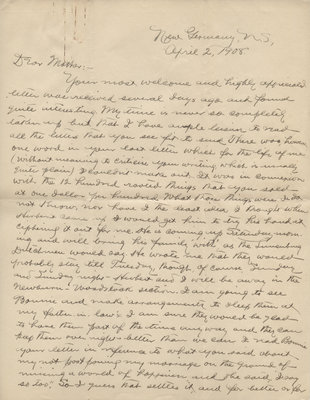 New Germany, N.S.,
April 2, 1908
Dear Mother:-
Your most welcome and highly appreciated
letter was received several days ago and found
quite interesting. My time is never so completely
taken up but that I have ample leisure to read
all the letters that you see fit to send. There was however
one word in your last letter which for the life of me
(without meaning to criticise your writing which is surely
quite plain) I couldn't make out. It was in connexion
with the 12 hundred rooted things that you sold
at one dollar per hundred. What those things were I do
not know, nor have I the least idea. I thought when
Herbert came up I would get him to try his hand at
ciphering it out for me. He is coming up Saturday morn-
ing and will bring his family with as the Lunenburg
Dutchman would say. He wrote me that they would
probably stay till Tuesday, though of course Sunday
and Sunday night Herbert and I will be away in the
Newburn - Woodstock section. I am going to see
Bonnie and make arrangements to sleep them at
my father in law's. I am sure they would be glad
to have them part of the time any way and they can
keep them over night better than we can. I read Bonnie
your letter in reference to what you said about
my not postponing my marriage on the ground of
missing a world of happiness and she said, I say
so too. So I guess that settles it, and for better or for